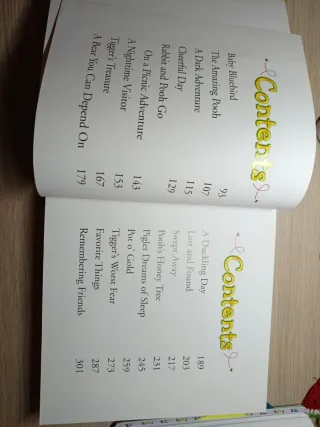 Contents
Baby Bluebird 93
The Amazing Pooh 107
A Dark Adventure 115
Cheerful Day 129
Rabbit and Pooh Go
On a Picnic Adventure 143
A Nighttime Visitor 153
Tigger's Treasure 167
A Bear You Can Depend On 179
Contents
A Duckling Day 189
Lost and Found 203
Swept Away 217
Pooh's Honey Tree 231
Piglet Dreams of Sleep 245
Pot o' Gold 259
Tigger's Worst Fear 273
Favorite Things 287
Remembering Friends 301